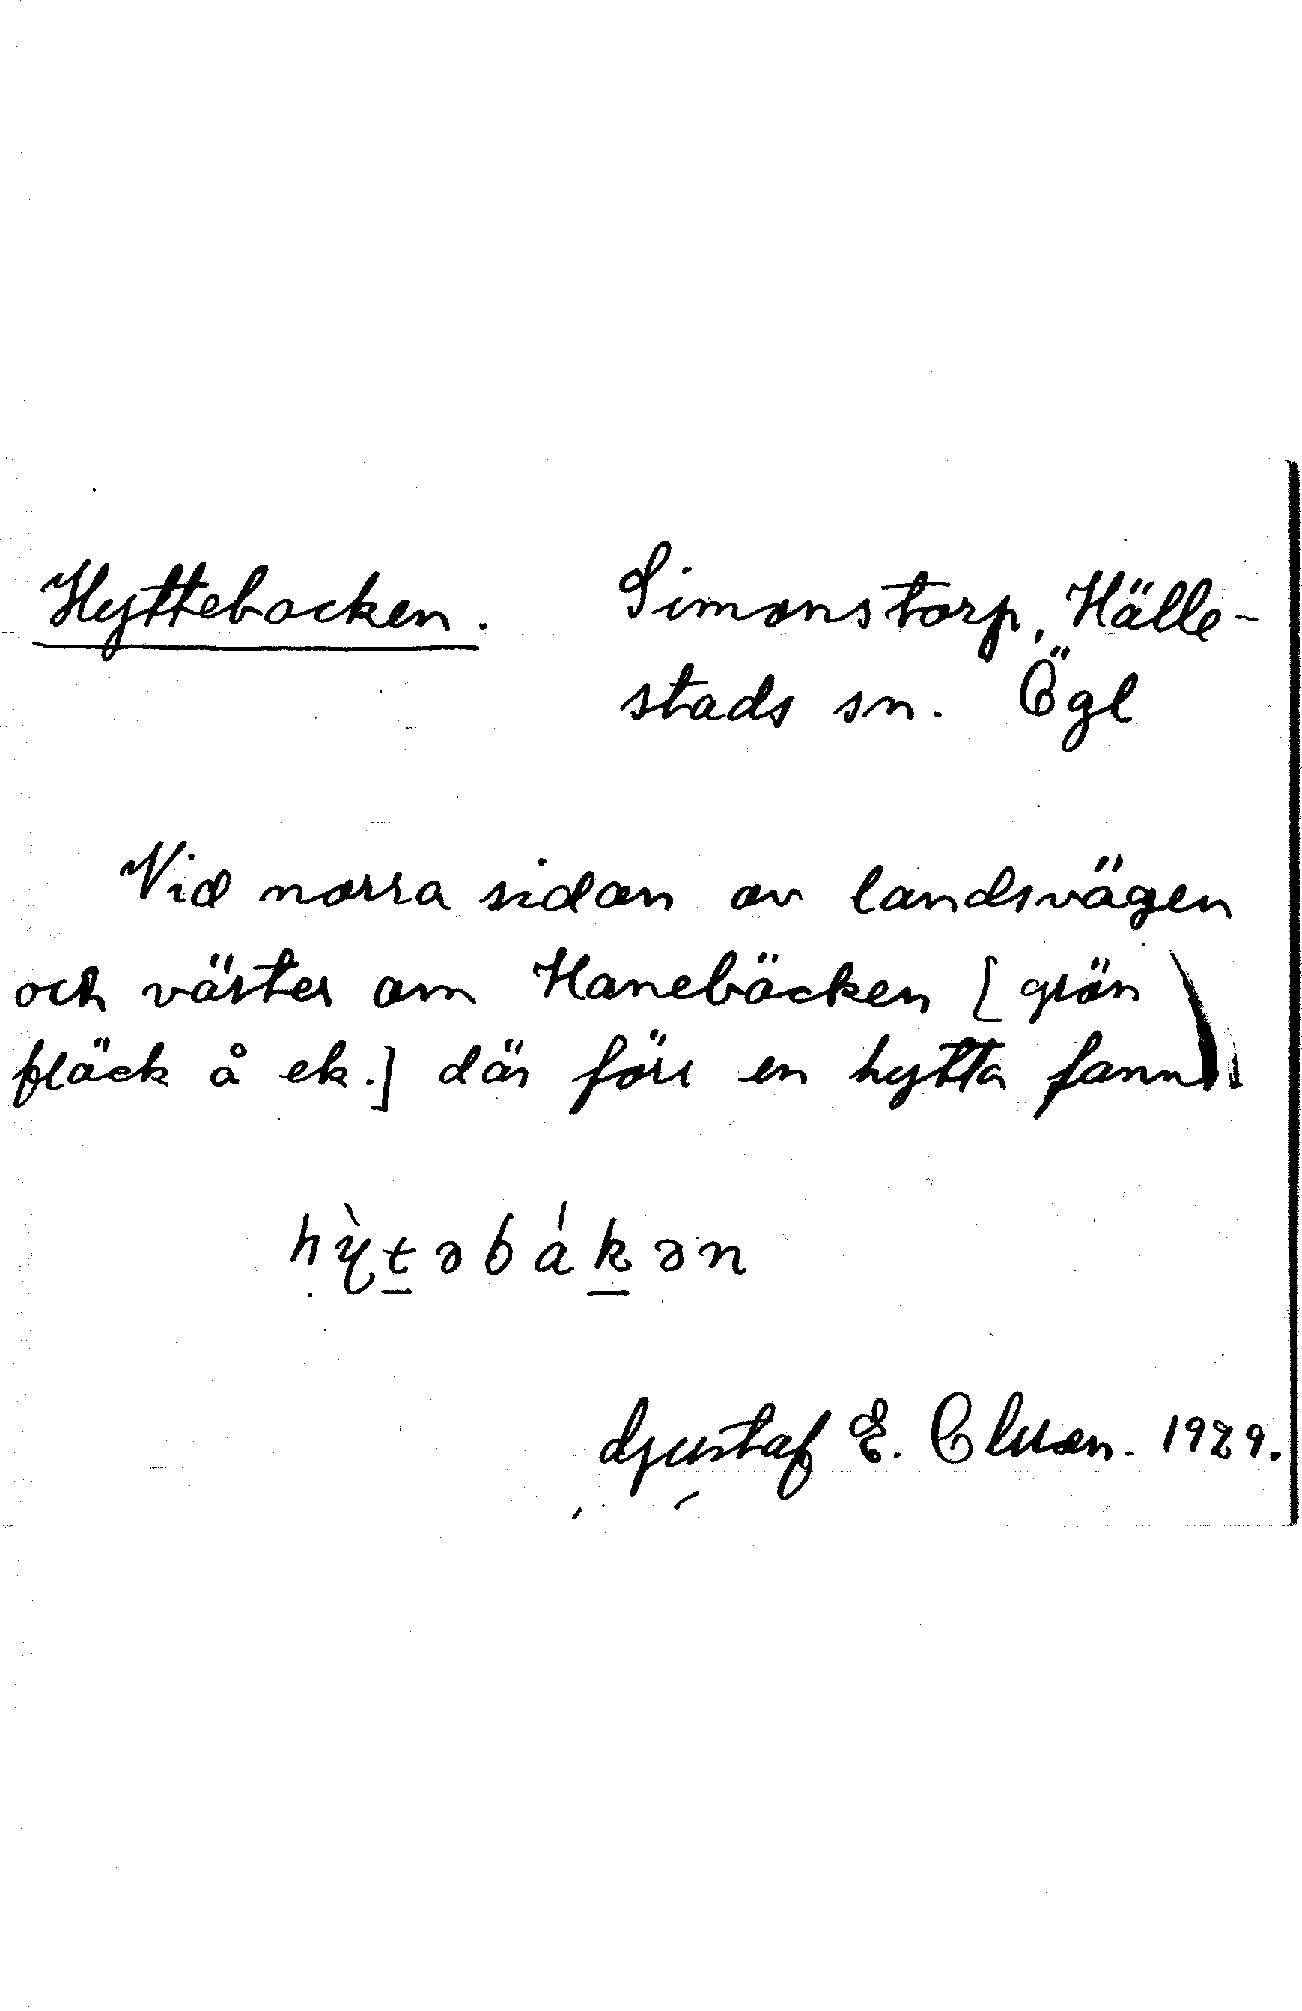 Hyttebacken. Simonstorp, Hälle-
stads sn. Ögl
Vid norra sidan av landsvägen
och väster om Hanebäcken [grön
fläck å ek.] där förr en hytta fanns
hỳtəbákən
Gustaf E. Clusen. 1929.